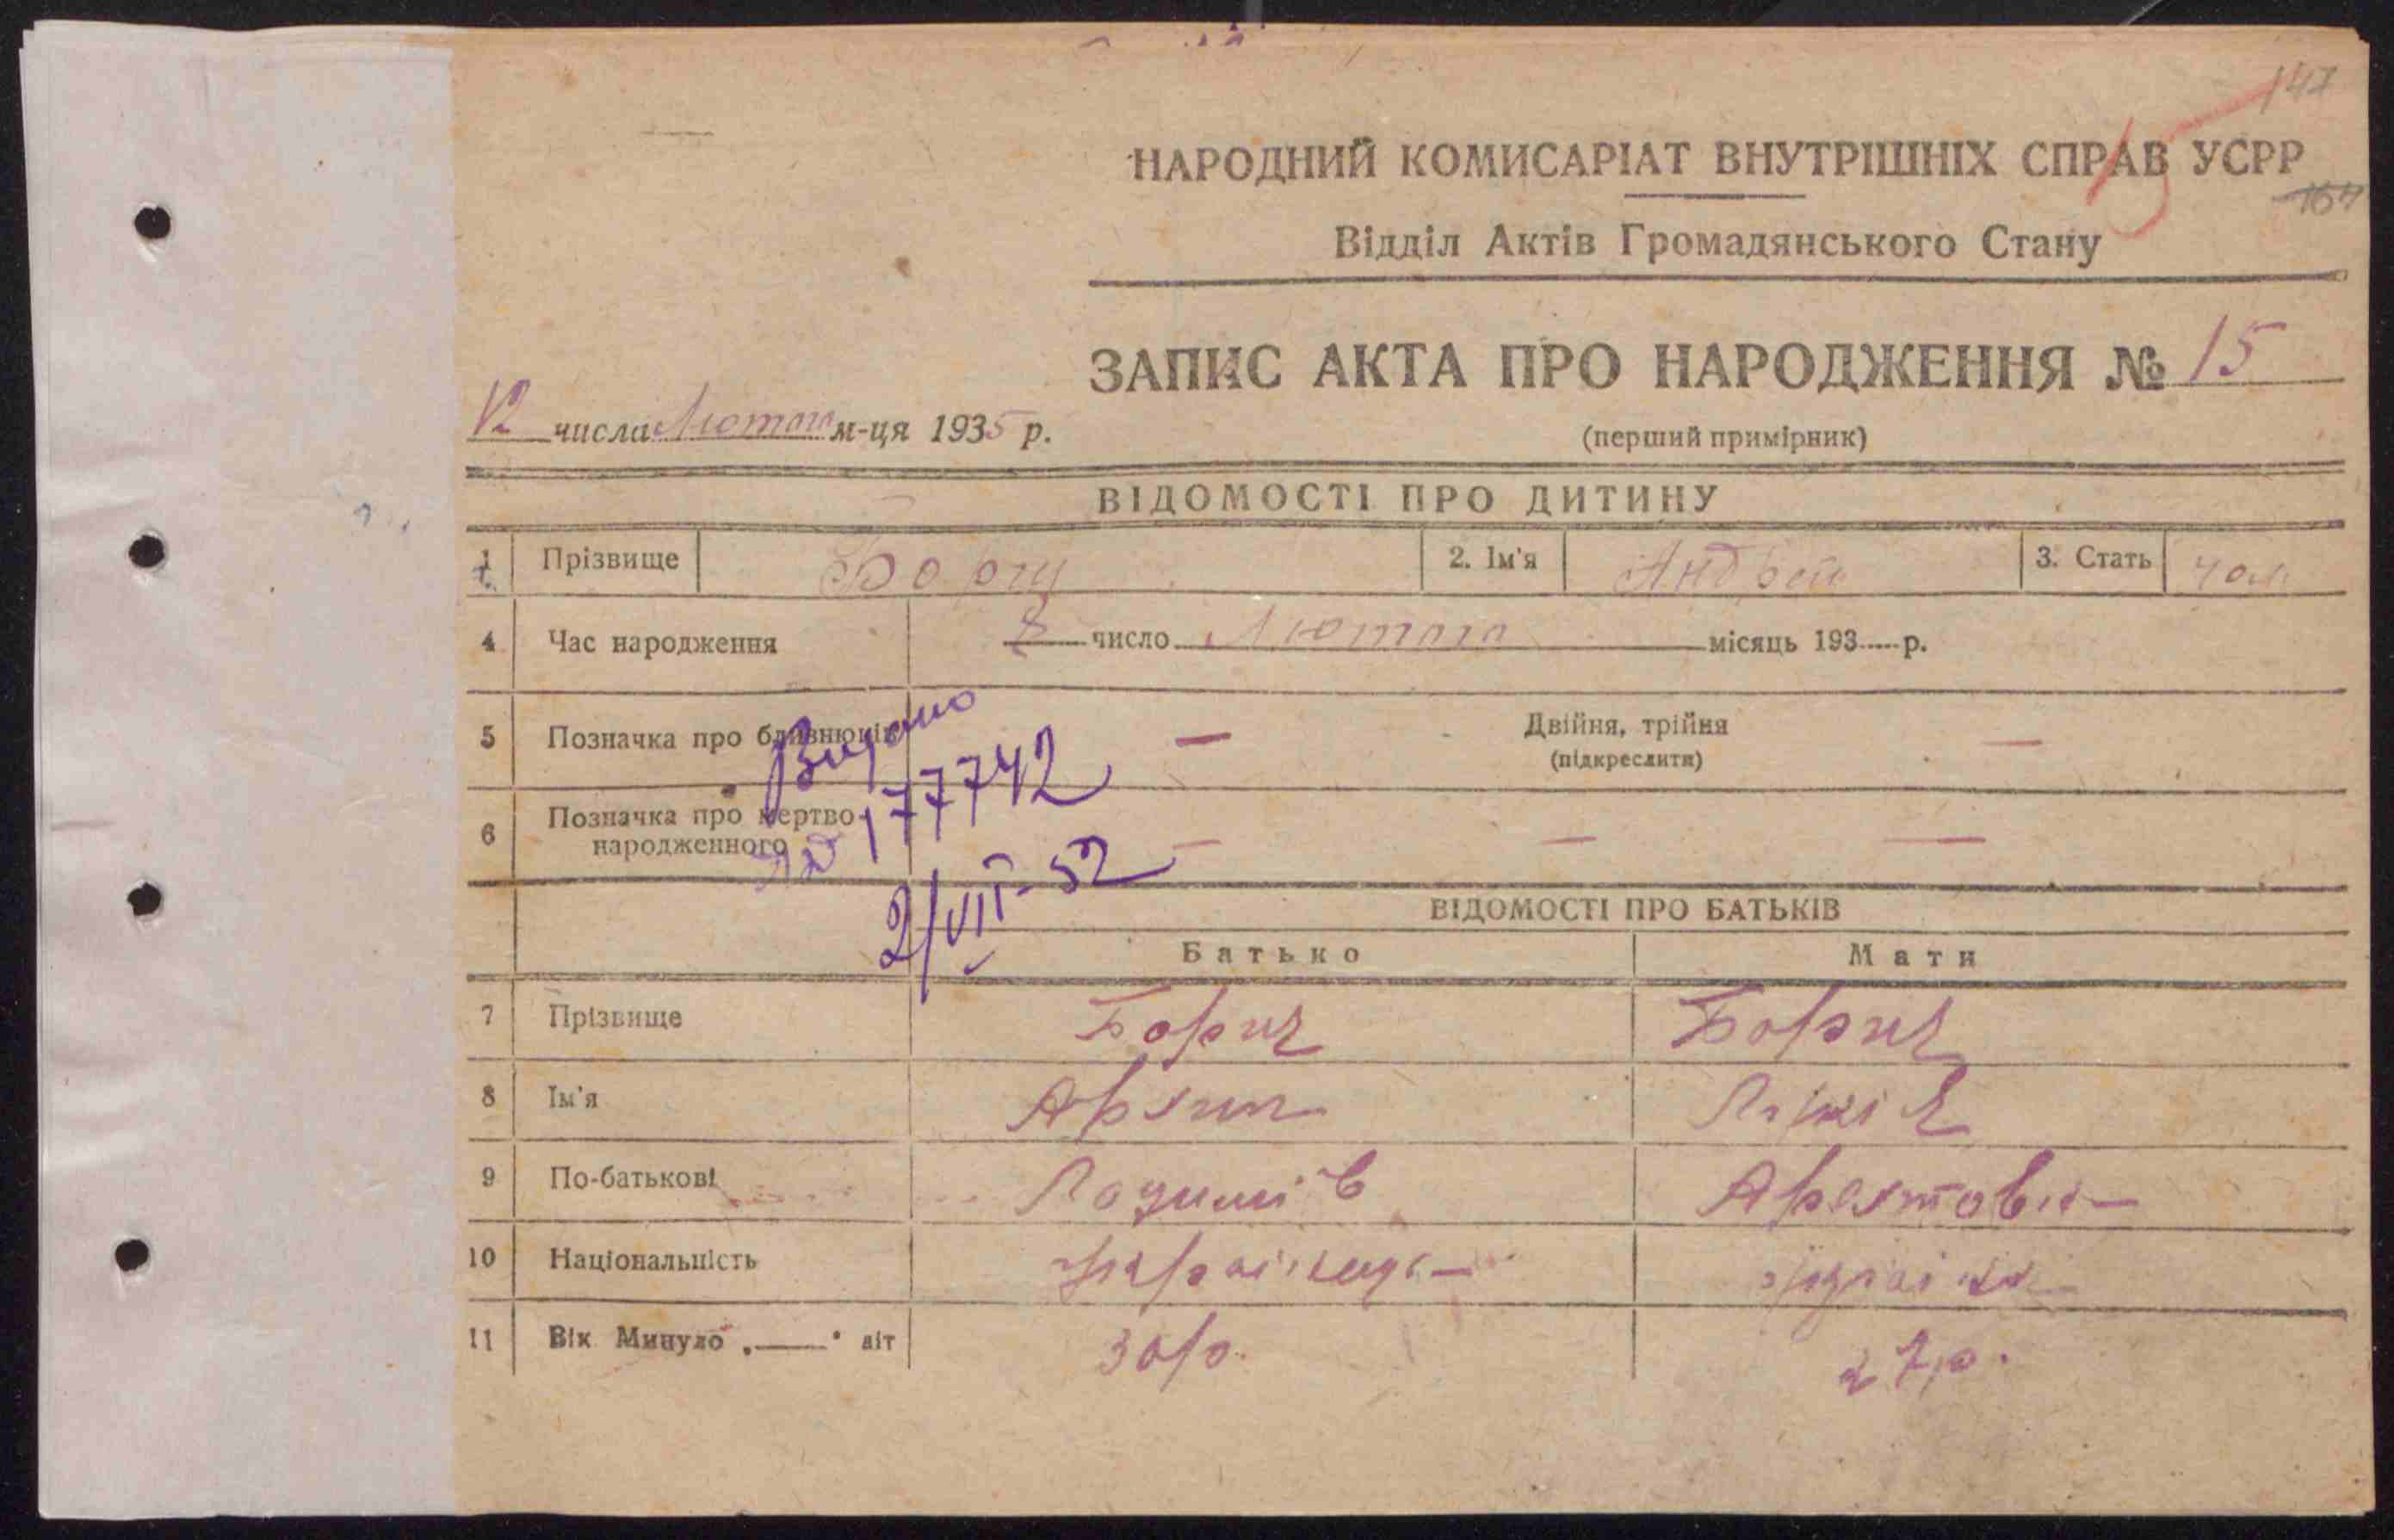 147
15
НАРОДНИЙ КОМИСАРІАТ ВНУТРІШНІХ СПРАВ УСРР
Відділ Актів Громадянського Стану
ЗАПИС АКТА ПРО НАРОДЖЕННЯ № 15
12 числа Лютого м-ця 1935 р.
(перший примірник)
ВІДОМОСТІ ПРО ДИТИНУ
1 Прізвище 2. Ім'я Андрей 3. Стать чол.
4 Час народження 8 число Лютого місяць 193 р.
5 Позначка про близнюців — Двійня, трійня —
(підкреслити)
Видано
177742
6 Позначка про мертво-
народженого — — —
2/VII-52
ВІДОМОСТІ ПРО БАТЬКІВ
Батько Мати
7 Прізвище
8 Ім'я Архип
9 По-батькові
10 Національність
11 Вік Минуло „—" літ 30 р. 27 р.